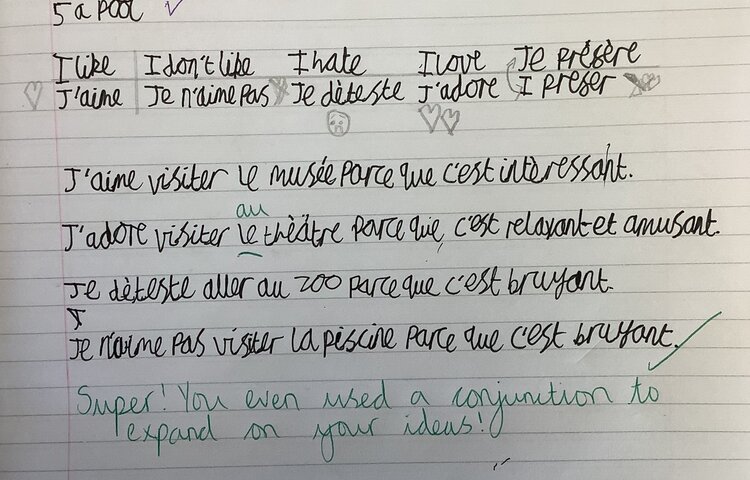 5 a pool ✓
I like I don't like I hate I love Je présère
J'aime Je n'aime pas Je dèteste J'adore I preser
J'aime visiter le musée parce que c'est intèressant.
au
J'adore visiter le thèâtre parce que c'est relaxant et amusant.
Je dèteste aller au zoo parce que c'est bruyant.
Je n'aime pas visiter la piscine parce que c'est bruyant.
Super! You even used a conjunction to
expand on your ideas!